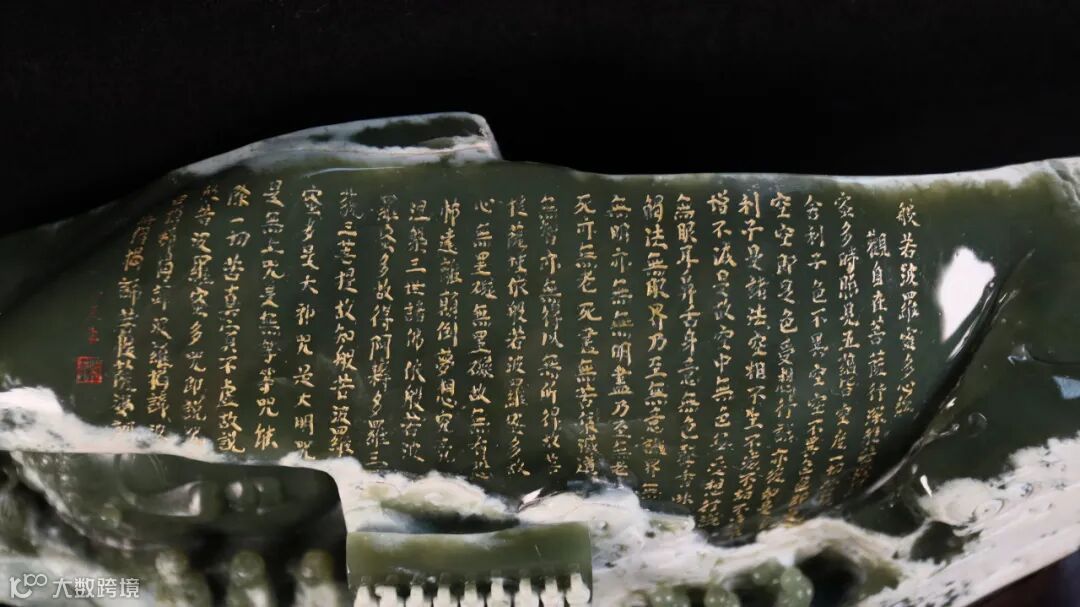 般若波羅蜜多心經
觀自在菩薩行深般若波羅
蜜多時照見五蘊皆空度一切
舍利子色不異空空不異色色即
空空即是色受想行識亦復如是
利子是諸法空相不生不滅不垢不淨
增不減是故空中無色無受想行識
無眼耳鼻舌身意無色聲香味
觸法無眼界乃至無意識界無
無明亦無無明盡乃至無老
死亦無老死盡無苦集滅道
無智亦無得以無所得故菩
提薩埵依般若波羅蜜多故
心無罣礙無罣礙故無有恐
怖遠離顛倒夢想究竟
涅槃三世諸佛依般若波
羅蜜多故得阿耨多羅三
藐三菩提故知般若波羅
蜜多是大神咒是大明咒
是無上咒是無等等咒能
除一切苦真實不虛故說
般若波羅蜜多咒即說咒
曰揭諦揭諦波羅揭諦波
羅僧揭諦菩提薩婆訶
大数跨境